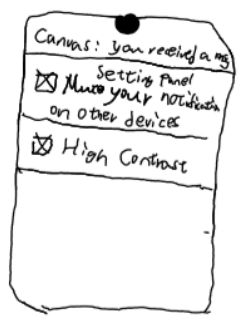 Canvas: you received a msg
Setting Panel
Mute your notification
on other devices
High Contrast